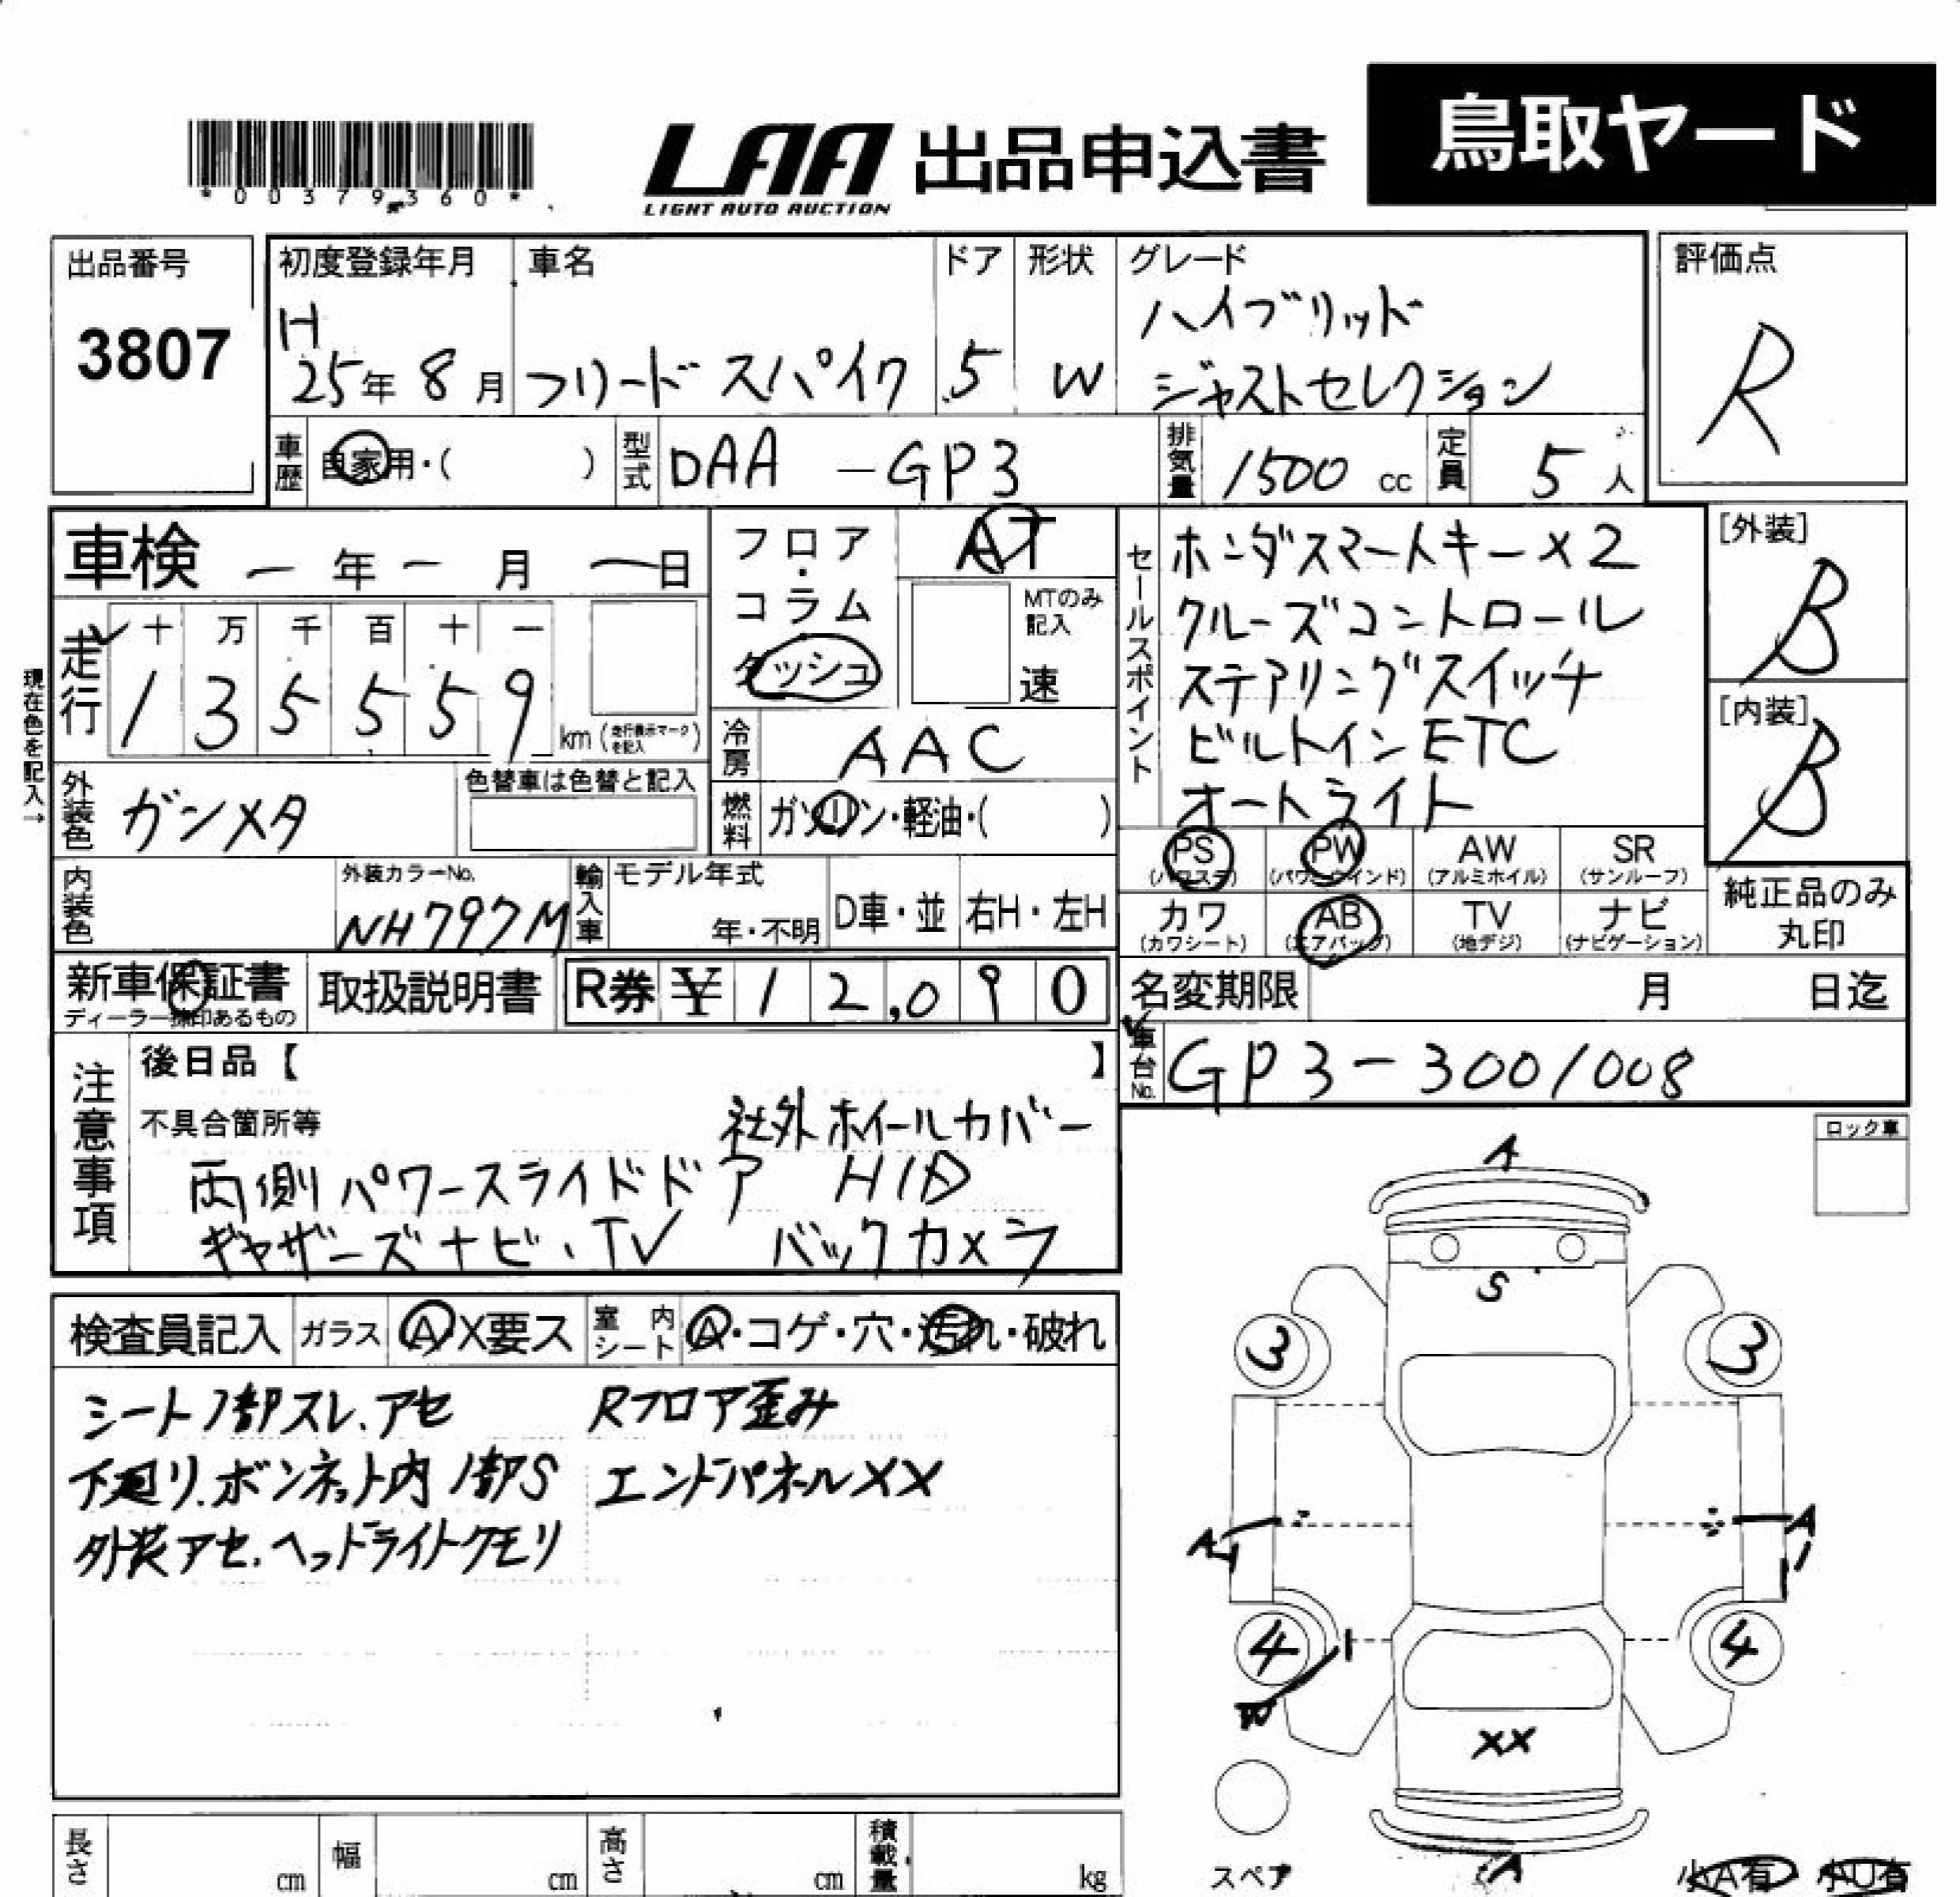 鳥取ヤード
*00379360*
LAA 出品申込書
LIGHT AUTO AUCTION
出品番号
3807
初度登録年月
H
25年 8月
車名
フリード スパイク
ドア
5
形状
W
グレード
ハイブリッド
ジャストセレクション
評価点
R
車歴 自家用・( )
型式 DAA-GP3
排気量 1500 cc
定員 5人
車検 ー年ー月ー日
フロア・コラム
ダッシュ
AT
MTのみ記入
速
セールスポイント
ホンダスマートキー×2
クルーズコントロール
ステアリングスイッチ
ビルトインETC
オートライト
[外装]
B
[内装]
B
現在色を記入→
走行
十 万 千 百 十 一
1 3 5 5 5 9
km (走行表示マークを記入)
冷房 AAC
外装色 ガンメタ
色替車は色替と記入
燃料 ガソリン・軽油・( )
PS (パワステ)
PW (パワーウインド)
AW (アルミホイル)
SR (サンルーフ)
内装色
外装カラーNo.
NH797M
輸入車
モデル年式
年・不明
D車・並
右H・左H
カワ (カワシート)
AB (エアバッグ)
TV (地デジ)
ナビ (ナビゲーション)
純正品のみ
丸印
新車保証書
ディーラー捺印あるもの
取扱説明書
R券 ¥12,090
名変期限 月 日迄
車台No. GP3-3001008
注意事項
後日品【 】
不具合箇所等
社外ホイールカバー
両側パワースライドドア HID
ギャザーズナビ・TV バックカメラ
ロック車
検査員記入
ガラス A X要ス
室内シート A・コゲ・穴・汚れ・破れ
シート1部スレ、アセ Rフロア歪み
下廻り、ボンネット内1部S エンドパネルXX
外装アセ、ヘッドライトクモリ
A
S
3 3
A1 A1
4 4
W1
XX
スペア
A
小A有 小U有
長さ cm
幅 cm
高さ cm
積載量 kg